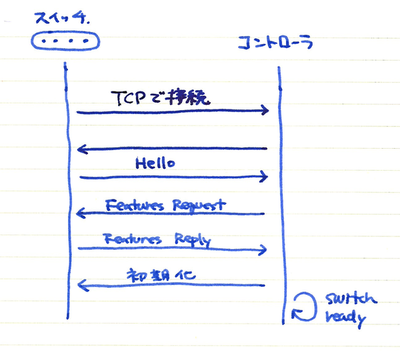 スイッチ.
コントローラ
TCPで接続
Hello
Features Request
Features Reply
初期化
switch
ready